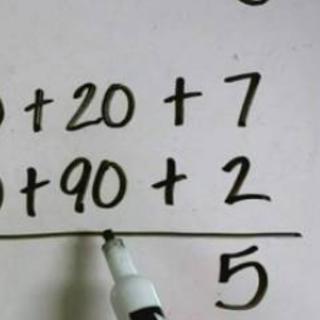 + 20 + 7
+ 90 + 2
5